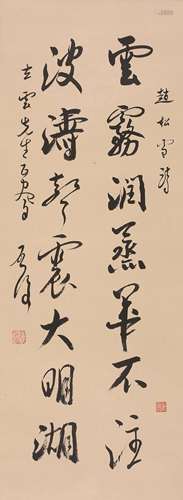 趙松雪詩
雲霧潤蒸華不注
波濤聲震大明湖
雲先生